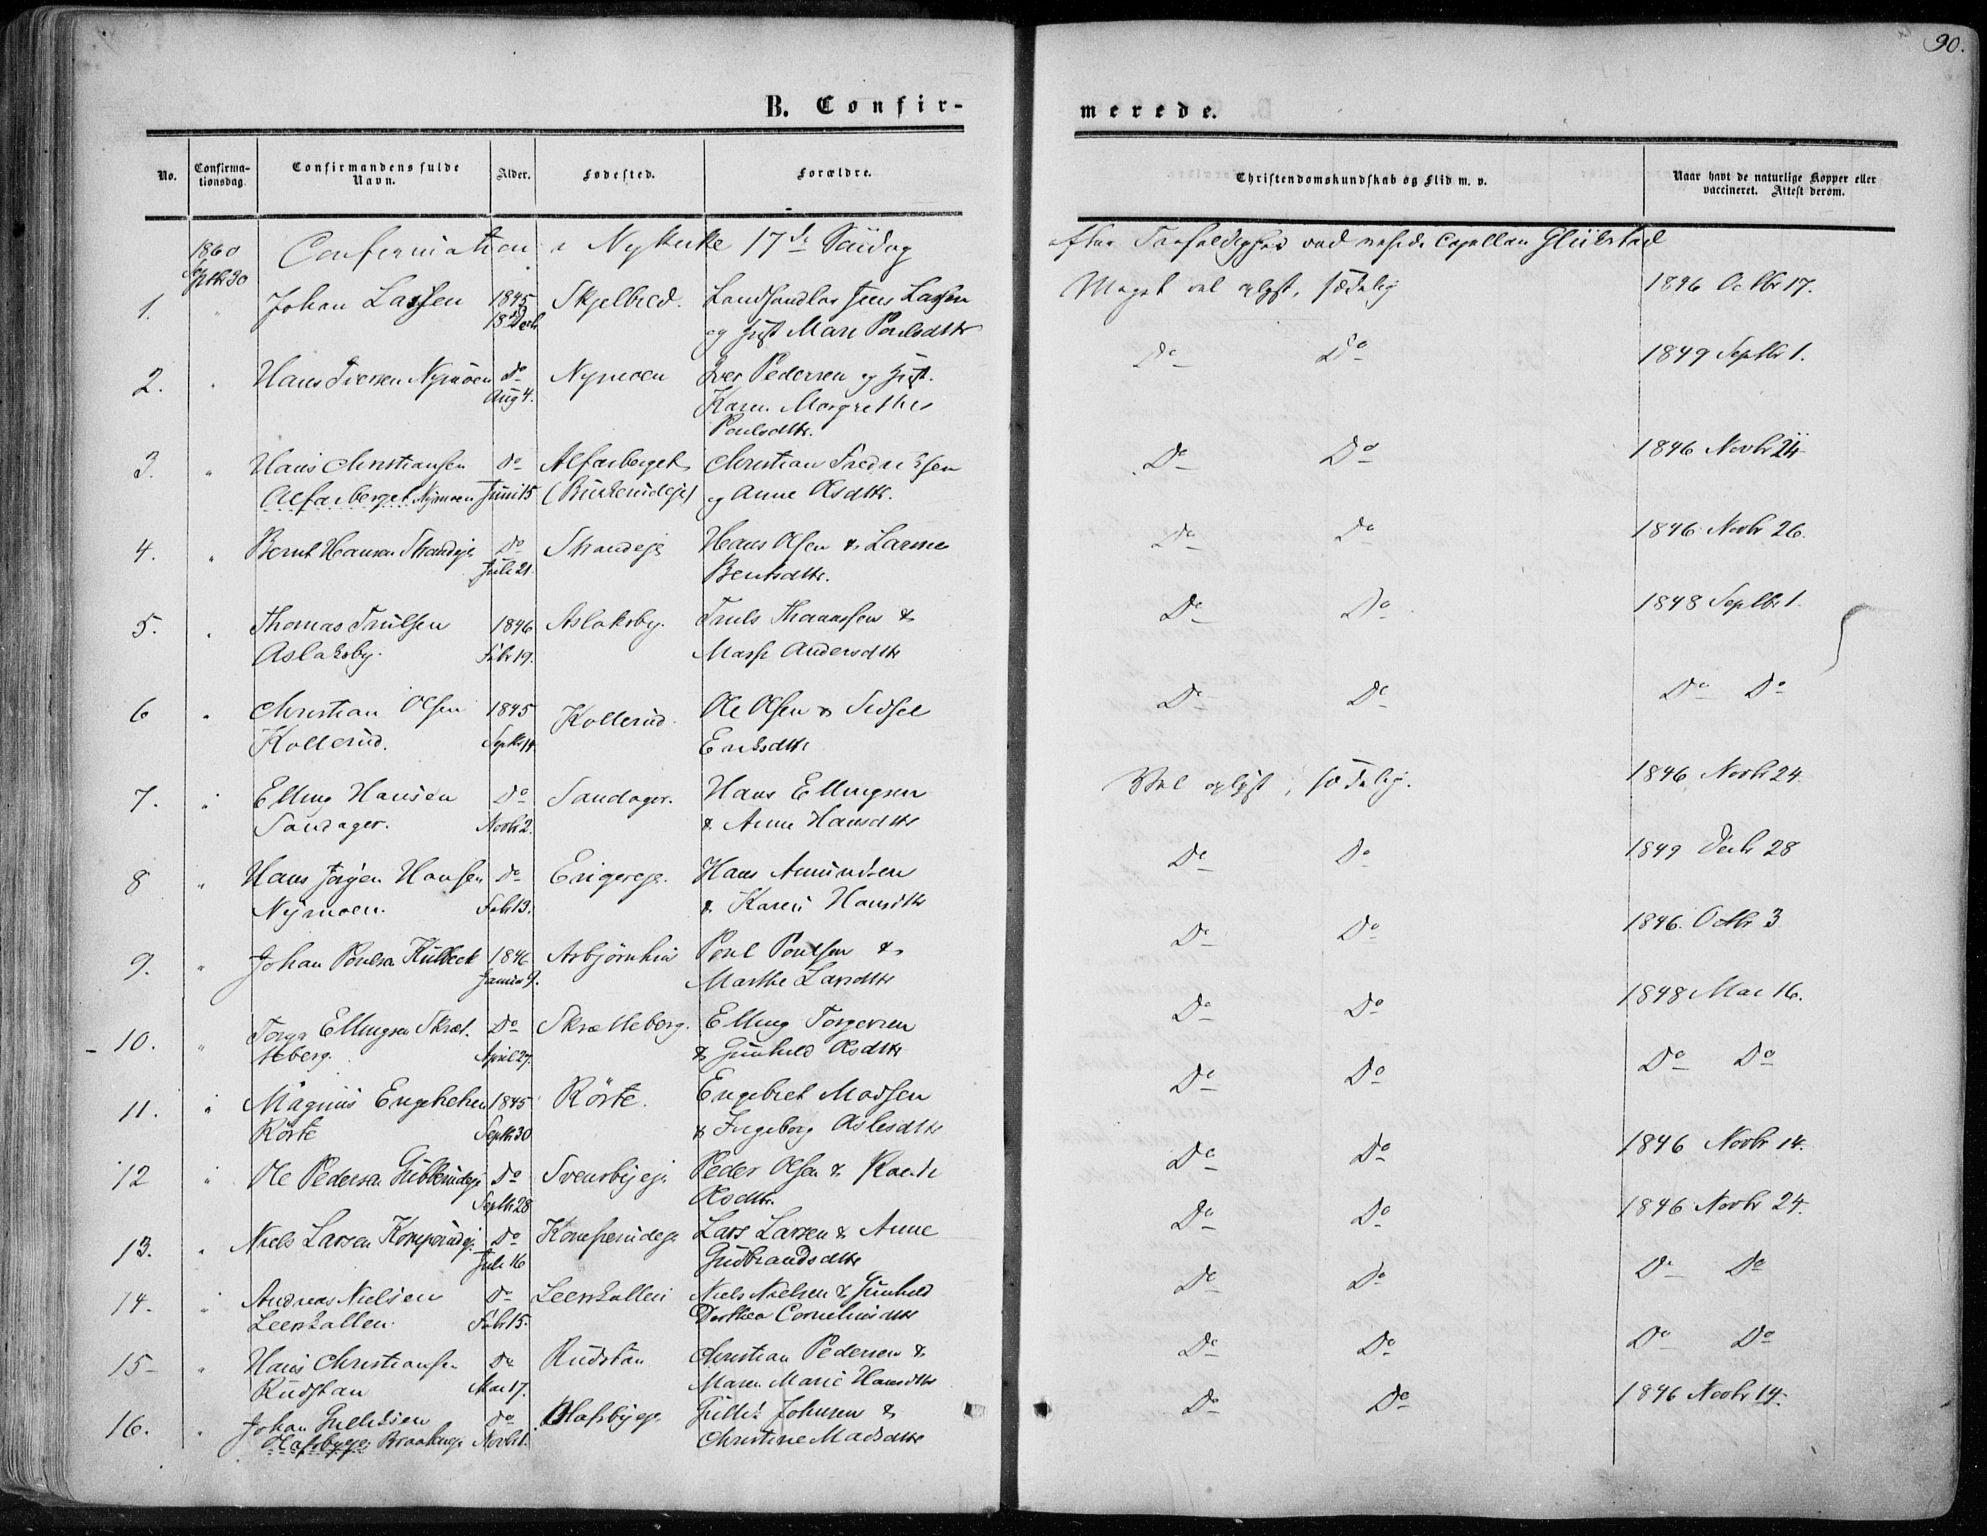 90.
B. Confir-
merede.
No.
Confirma-
tionsdag.
Confirmandens fulde
Navn.
Alder.
Fødested.
Forældre.
Christendomskundskab og Flid m. v.
Naar havt de naturlige Kopper eller
vaccineret. Attest derom.
1860 Confirmation i Nykirke 17de Søndag efter Trefoldighed ved Capellan Glükstad
Septbr 30
1. " Johan Larsen 1845 Skjelbred. Landhandler Jens Larsen Meget vel oplyst, sædelig 1846 Octbr 17.
18 Decb. og Gift Mari Poulsdttr
2. " Hans Iversen Nymoen Do Nymoen Iver Pedersen og Gift. Do Do 1849 Septbr 1.
Aug 4. Karen Margrethe
Poulsdttr.
3. " Hans Christiansen Do Alfarberget Christian Fredriksen Do Do 1846 Novbr 24
Alfarberget Nymoen Juni 15 og Anne Olsdttr.
4. " Bernt Hansen Strandeje Do Strandeje Hans Olsen & Do Do 1846 Novbr 26.
Juli 21. Bentsdttr.
5. " Thomas Trulsen 1846 Aslaksby. Truls Thomassen & Do Do 1848 Septbr 1.
Aslaksby. Febr 19. Andersdttr
6 " Christian Olsen 1845 Kollerud. Ole Olsen & Sidsel Do Do Do Do
Kollerud. Septbr 14. Eriksdttr
7. " Elling Hansen Do Sandager. Hans Ellingsen Vel oplyst, sædelig. 1846 Novbr 24.
Sandager. Novbr 2. & Anne Hansdttr
8 " Hans Jørgen Hansen Do Hans Amundsen Do Do 1849 Decbr 28
Nymoen. Febr 13. & Karen Hansdttr
9. " Johan Poulsen 1846 Poul Poulsen & Do Do 1846. Octbr 3
9. Marthe Larsdttr
10. " Ellingsen Skræt- Do Skrætteberg. Elling Torgersen Do Do 1848 Mai 16.
teberg. April 27. & Gunhild Olsdttr
11. " Magnus 1845 Rörte. Engebret Madsen Do Do Do Do
Rörte Septbr 30 & Ingeborg Aslesdttr
12 " Ole Pedersen Do Svensbyeje Peder Olsen & Do Do 1846 Novbr 14.
Septbr 28 Olsdttr.
13. " Niels Larsen Do Lars Larsen & Anne Do Do 1846 Novbr 24.
Juli 16 Gudbrandsdttr
14. " Andreas Nielsen Do Leerskallen Niels Nielsen & Gunhild Do Do Do Do
Leerskallen. Febr 15. Dorthea Corneliusdttr
15 " Hans Christiansen Do Rudstan Christian Pedersen & Do Do Do Do
Rudstan Mai 17. Maren Marie Hansdttr
16. " Johan Gulliksen Do Olafsbyeje Johnsen & Do Do 1846 Novbr 14.
Olafsbyeje Novbr 1. Christine Madsdttr